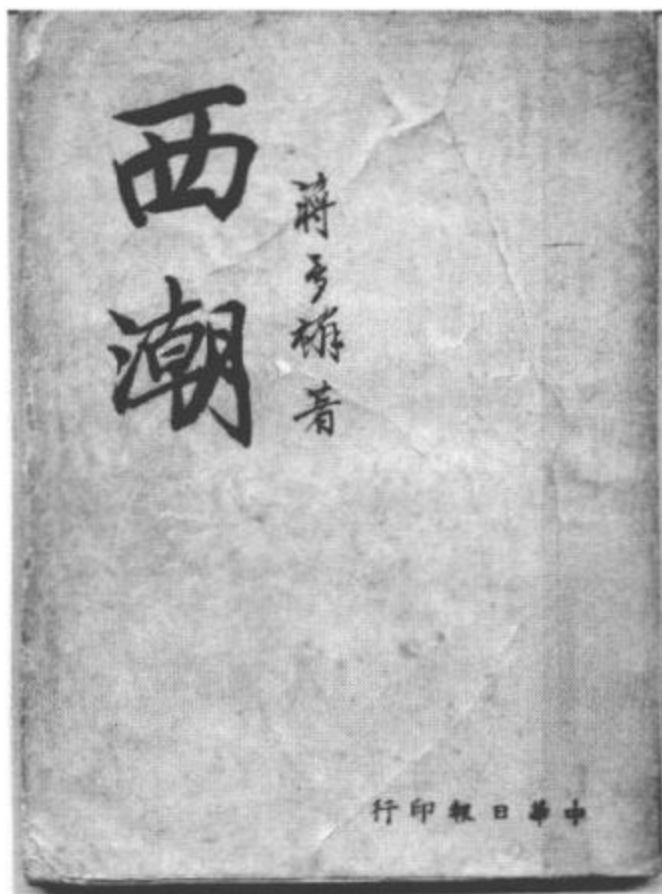 西潮
蔣夢麟著
中華日報印行